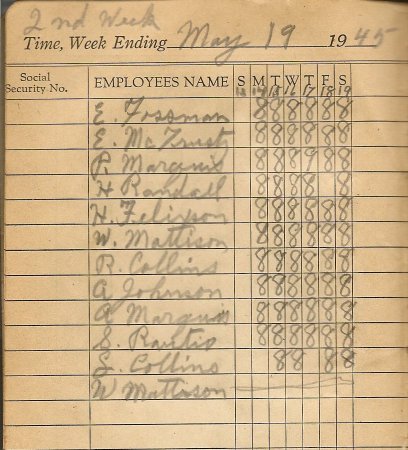 2nd Week
Time, Week Ending May 19 1945
Social Security No. EMPLOYEES NAME S M T W T F S
13 14 15 16 17 18 19
E. Fossman 8 8 8 8 8 8
E. McTrusty 8 8 8 8 8 8
P. Marquis 8 8 8 9 8 8
H Randall 8 8 7 8 8
H. Felixson 8 8 8 8 8 8
W. Mattison 8 8 8 8 8 8
R. Collins 8 8 8 8 8
A Johnson 8 8 8 8 8 8
A Marquis 8 8 8 8 8 8
S. Rautio 8 8 8 8 8 8
L. Collins 8 8 8 8
W Mattison